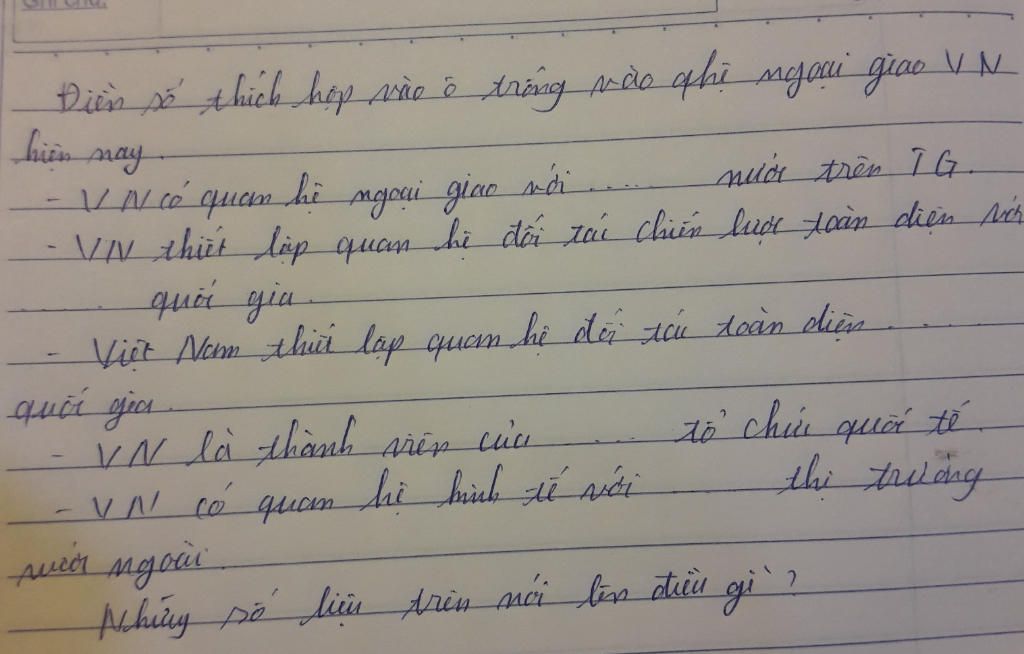 Ghi chú:
Điền số thích hợp vào ô trống vào qhệ ngoại giao VN
hiện nay.
- VN có quan hệ ngoại giao với ..... nước trên TG.
- VN thiết lập quan hệ đối tác chiến lược toàn diện với
...... quốc gia.
- Việt Nam thiết lập quan hệ đối tác toàn diện .....
quốc gia.
- VN là thành viên của ..... tổ chức quốc tế.
- VN có quan hệ kinh tế với ..... thị trường
nước ngoài.
Những số liệu trên nói lên điều gì?